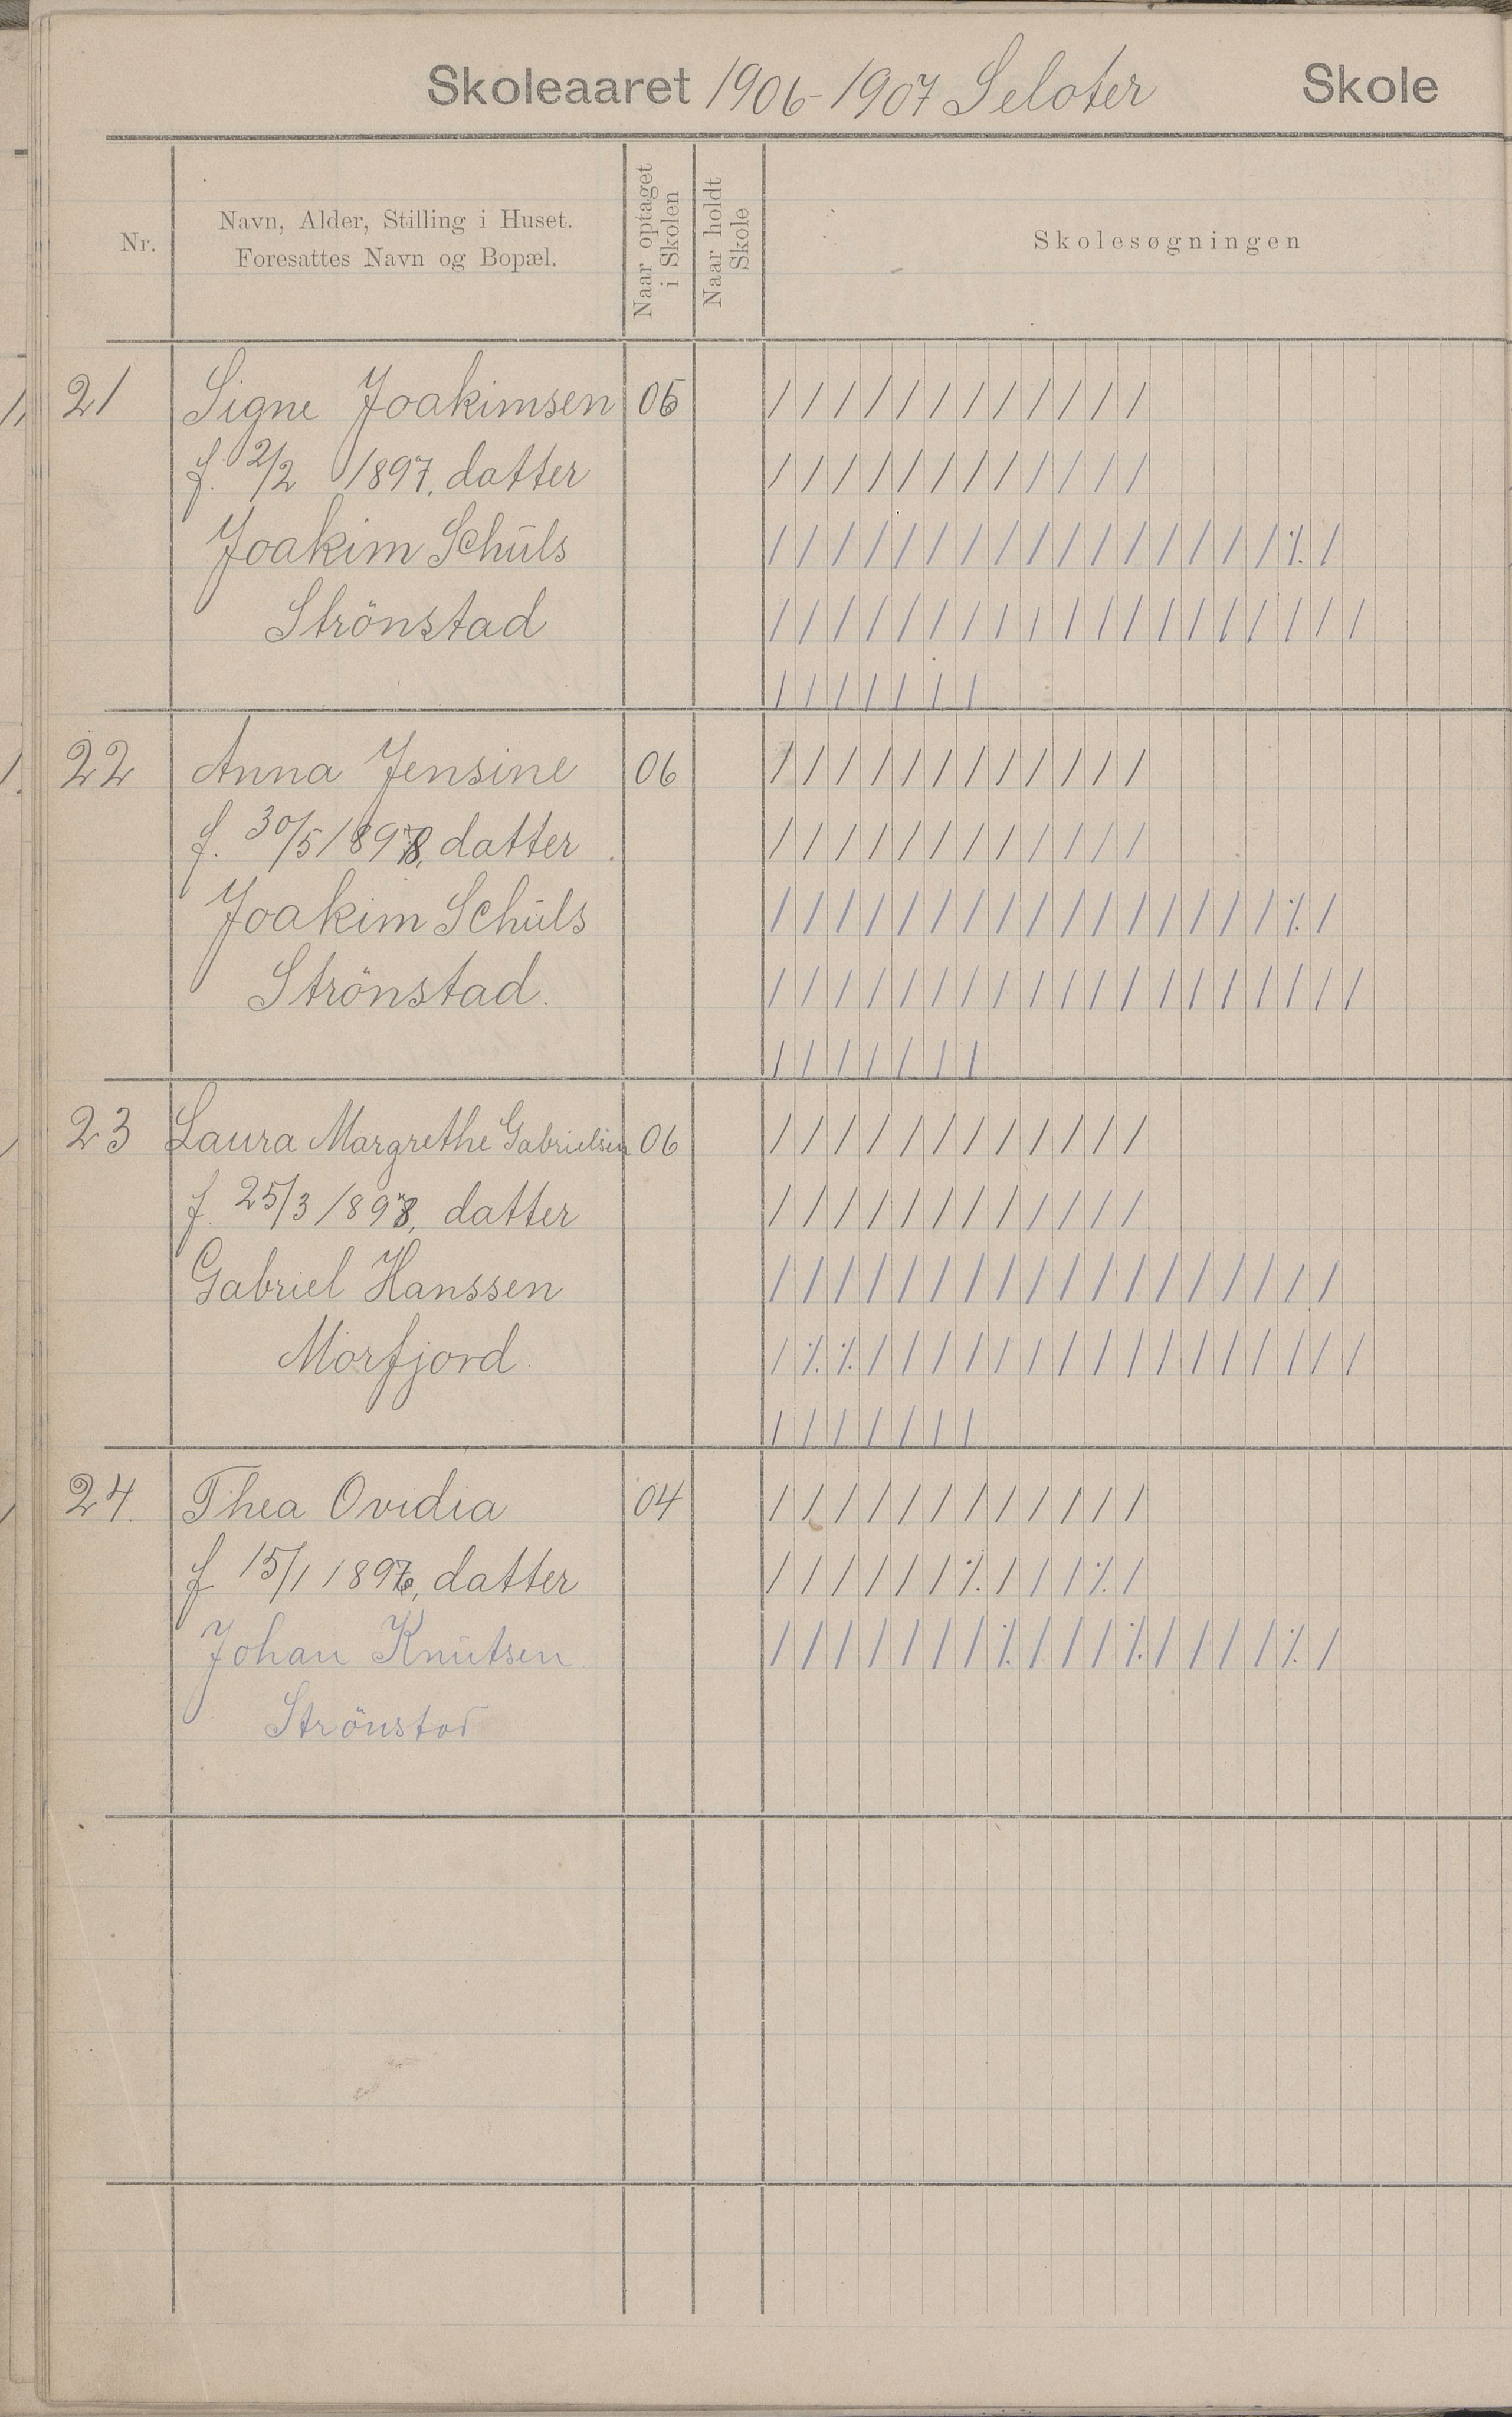 Skoleaaret 1906-1907 Seloter Skole
Nr.
Navn, Alder, Stilling i Huset.
Foresattes Navn og Bopæl.
Naar optaget
i Skolen
Naar holdt
Skole
Skolesøgningen
21 Signe Joakimsen 05 / / / / / / / / / / / /
f. 2/2 1897, datter / / / / / / / / / / / /
Joakim Schūls / / / / / / / / / / / / / / / / ٪ /
Strönstad / / / / / / / / / / / / / / / / / / /
/ / / / / / /
22 Anna Jensine 06 / / / / / / / / / / / /
f. 30/5 1898, datter / / / / / / / / / / / /
Joakim Schūls / / / / / / / / / / / / / / / / ٪ /
Strönstad. / / / / / / / / / / / / / / / / / / /
/ / / / / / /
23 Laura Margrethe Gabrielsen 06 / / / / / / / / / / / /
f. 25/3 1898, datter / / / / / / / / / / / /
Gabriel Hanssen / / / / / / / / / / / / / / / / / /
Morfjord / ٪ ٪ / / / / / / / / / / / / / / / /
/ / / / / / /
24. Thea Ovidia 04 / / / / / / / / / / / /
f 15/1 1896, datter / / / / / / ٪ / / / ٪ /
Johan Knūtsen / / / / / / / ٪ / / / ٪ / / / / ٪ /
Strönstad